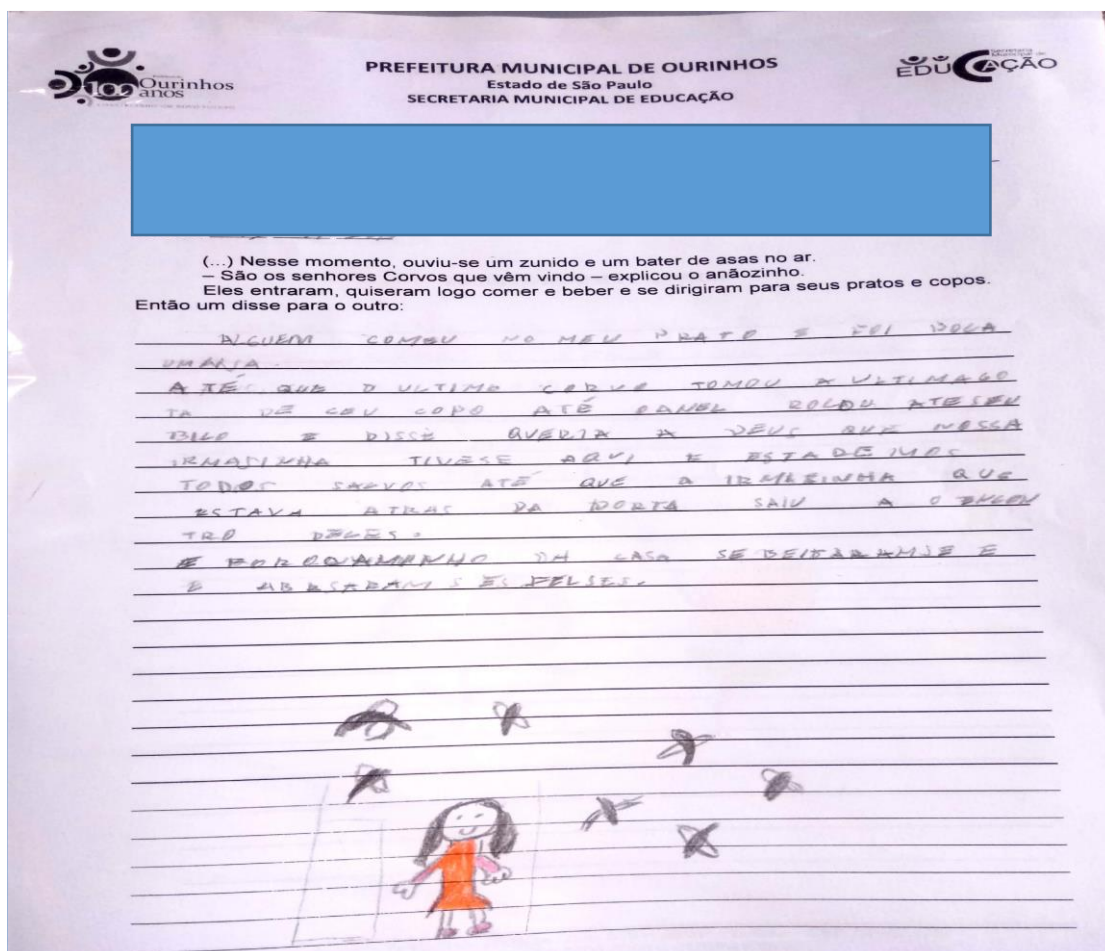 Ourinhos
100 anos
PREFEITURA MUNICIPAL DE OURINHOS
Estado de São Paulo
SECRETARIA MUNICIPAL DE EDUCAÇÃO
Secretaria Municipal de
EDUCAÇÃO
(...) Nesse momento, ouviu-se um zunido e um bater de asas no ar.
– São os senhores Corvos que vêm vindo – explicou o anãozinho.
Eles entraram, quiseram logo comer e beber e se dirigiram para seus pratos e copos.
Então um disse para o outro:
ALGUEM COMEU NO MEU PRATO E FOI BOCA
UMANA.
ATÉ QUE O ULTIMO CORVO TOMOU A ULTIMAGO
TA DE CEU COPO ATÉ OANEL ROLOU ATE SEU
BICO E DISSE QUERIA A DEUS QUE NOSSA
IRMASINHA TIVESE AQUI E ESTADEIMOS
TODOS SALVOS ATÉ QUE A IRMASINHA QUE
ESTAVA ATRAS DA PORTA SAIU A O ENCON
TRO DELES.
E FOROCAMINHO DA CASA SE BEIJARAMSE E
E ABASARAM